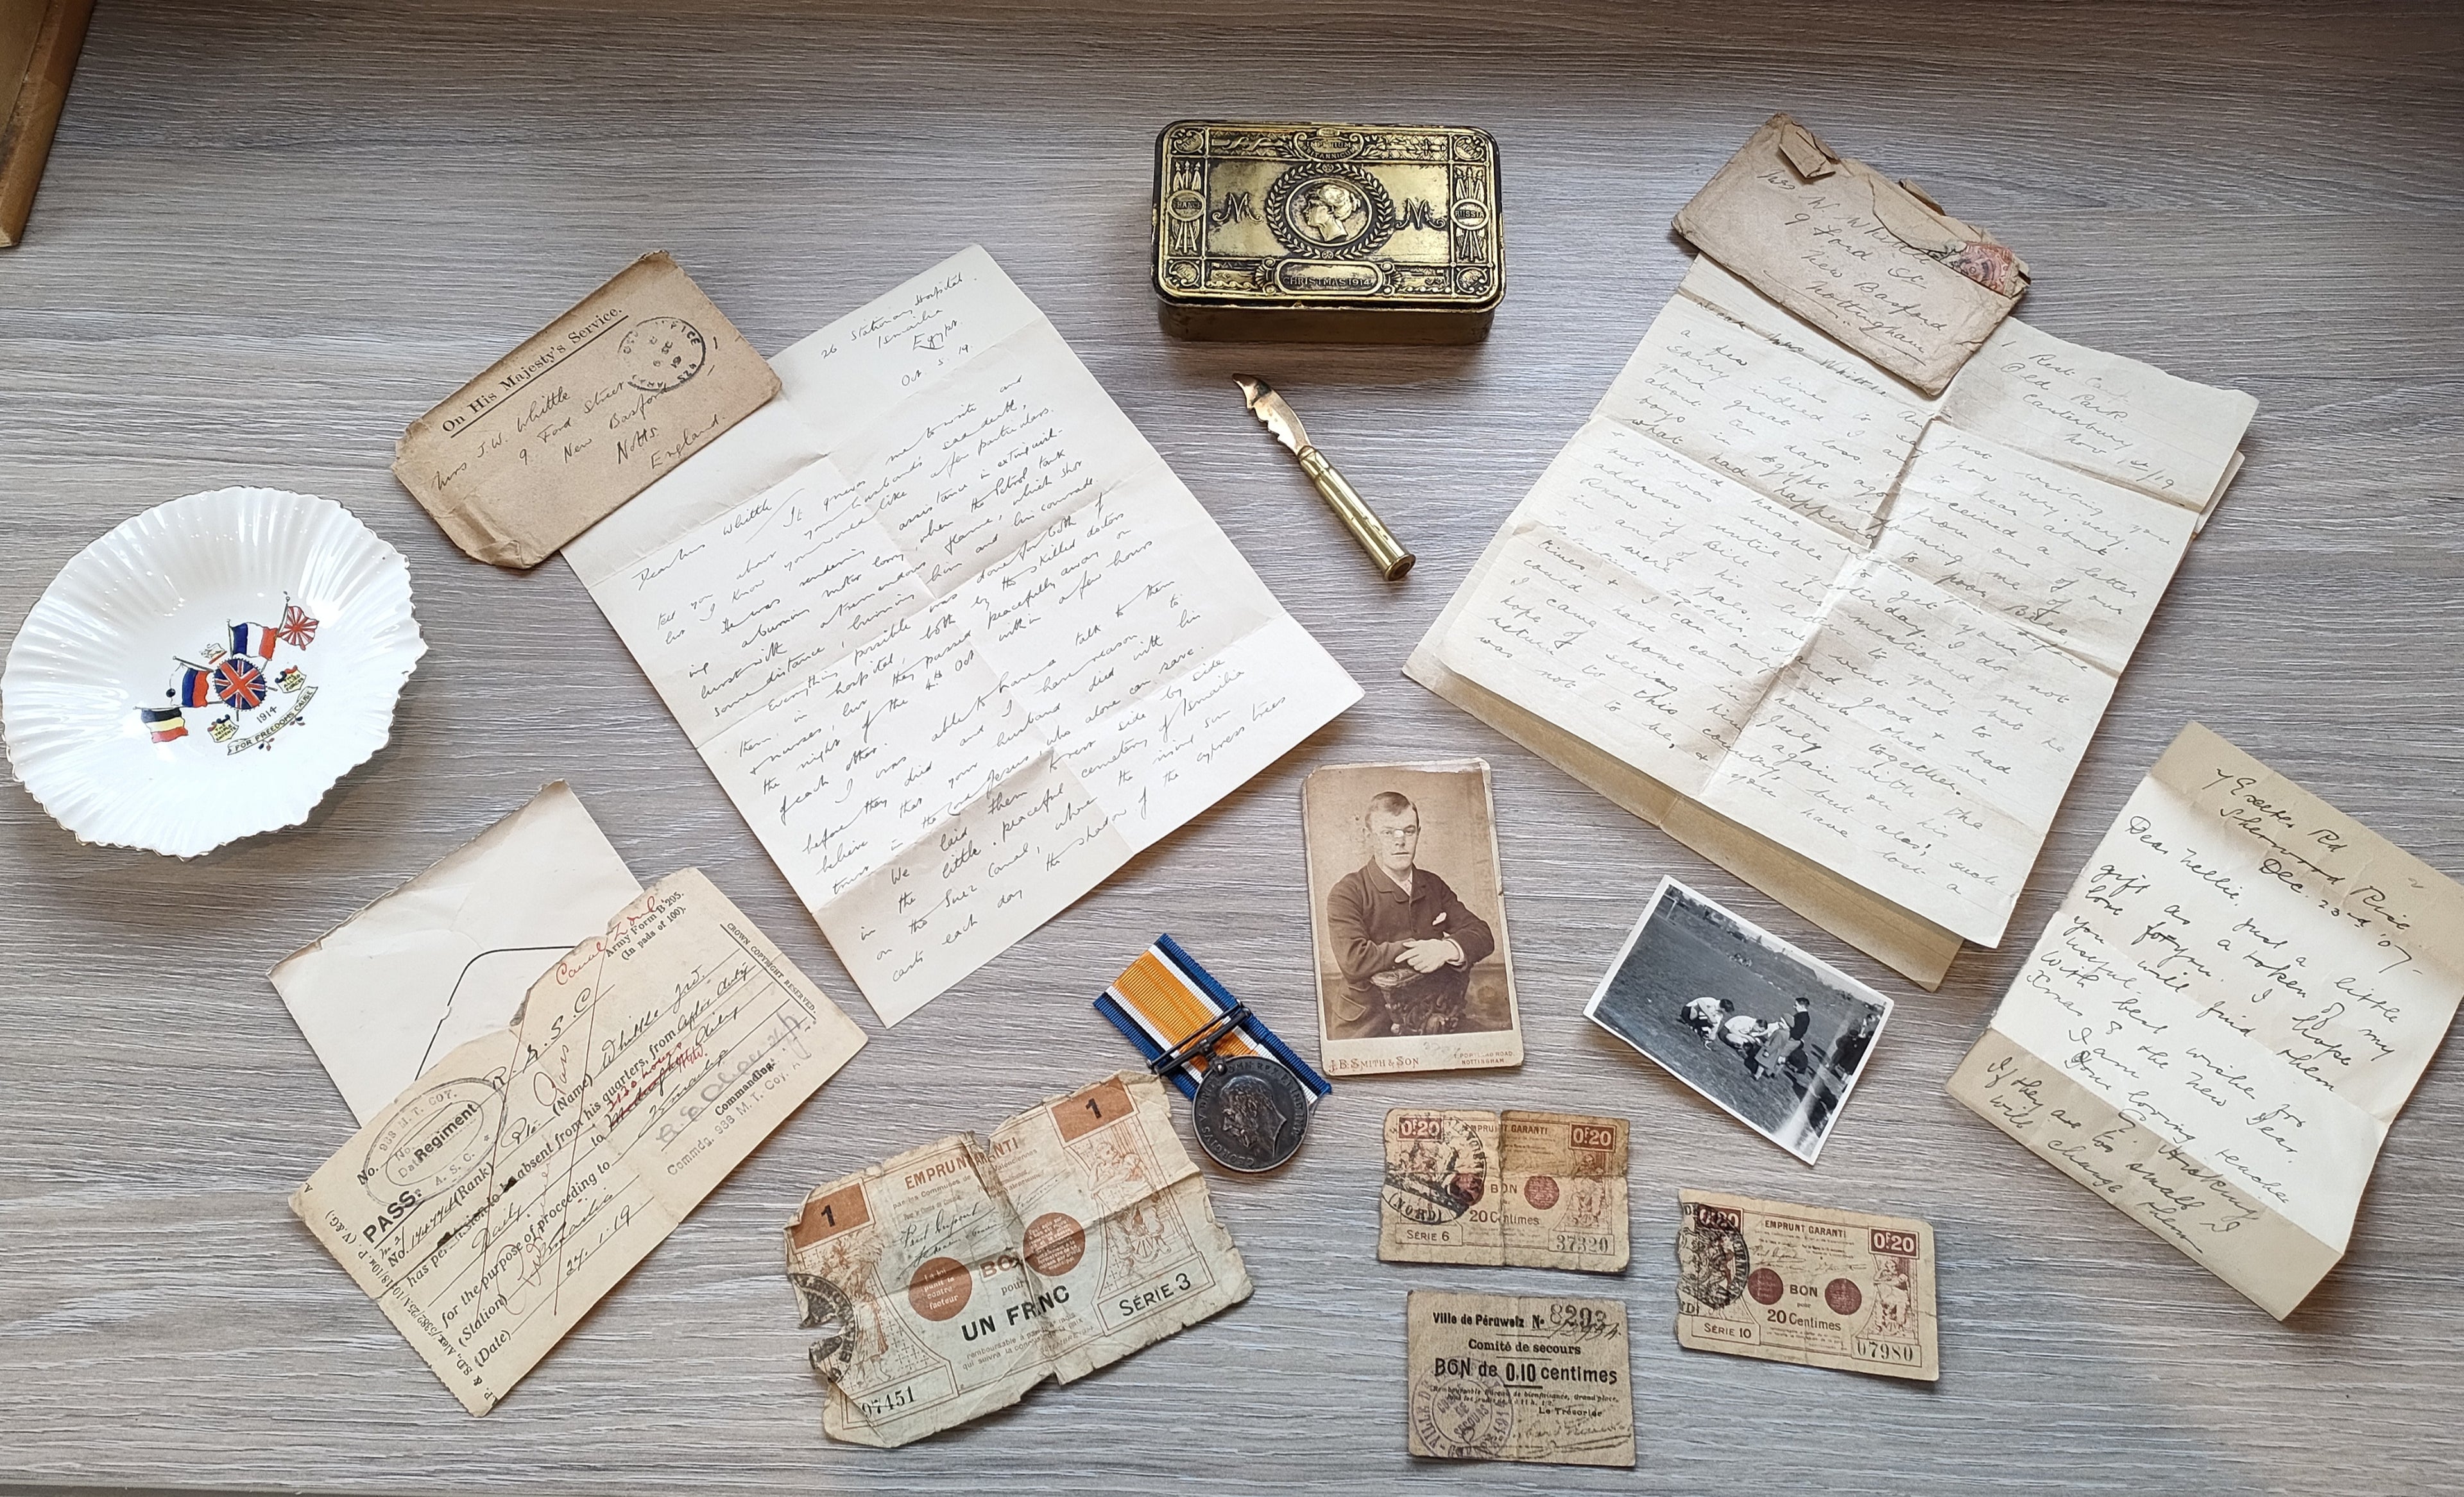 On His Majesty's Service.
Mrs J.W. Whittle
9. Ford Street
New Basford
Notts.
England.
26 Stationary Hospital.
Ismailia
Egypt.
Oct. 5. 19.
Dear Mrs Whittle
It grieves me to write and
tell you about your husband's sad death,
but I know you would like a few particulars.
He was rendering assistance in extinguish-
ing a burning motor lorry, when the Petrol tank
burst with a tremendous flame, which shot
some distance, burning him and his comrade
Everything possible was done for both of
them in hospital, both by the skilled doctors
& nurses, but they passed peacefully away on
the night of the 4th Oct within a few hours
of each other.
I was able to have a talk to them
before they died and I have reason to
believe that your husband died with his
trust in the Lord Jesus, who alone can save.
We laid them to rest side by side
in the little peaceful cemetery of Ismailia
on the Suez Canal, where the rising sun
casts each day the shadow of the cypress trees
FRANCE
RUSSIA
M
M
CHRISTMAS 1914
Mrs W. Whittle
9 Ford St
New Basford
Nottingham
Old Park
Canterbury
Nov 1st/19
Dear Mrs Whittle
Am just writing you
a few lines to say how very, very,
sorry indeed I am to hear about
your great loss. I received a letter
about days ago from one of our
boys in Egypt telling me of
what had happened to poor Bill
I would have written you before
but was unable to get your
address until yesterday. I do not
know if Bill ever mentioned me
in any of his letters to you, but he
& I were pals. We went out to
together and good & bad
times. I can only wish that we
could have come home together.
I came home in July with the
hope of seeing him again on his
return to this country but alas! such
was not to be, & you have lost a
1914
FOR FREEDOMS CAUSE
Canal Zone
Army Form B 295.
(In pads of 100).
CROWN COPYRIGHT RESERVED.
R. A. S. C.
No. 938 M. T. COY.
Regiment
A. S. C.
PASS.
No. (Rank) Pte. (Name) Whittle J.W.
has permission to be absent from his quarters, from after duty
Daily to
for the purpose of proceeding to
(Station) Ismailia
(Date) 27.1.19
Commanding.
Commdg. 938 M. T. Coy. A
J. B. SMITH & SON
PORTLAND ROAD,
NOTTINGHAM.
7 Exeter Rd
Sherwood Rise
Dec. 23rd '07
Dear Nellie, Just a little
gift as a token of my
love for you. I hope
you will find them
useful.
With best wishes for
Xmas & the New Year,
I am
Your loving teacher
If they are too small I
will change them
1
1
EMPRUNT GARANTI
par les Communes de
BON
pour
UN FRANC
La loi
punit le
contre
facteur
SÉRIE 3
07451
0F20
0F20
EMPRUNT GARANTI
BON
20 Centimes
(NORD)
SÉRIE 6
37320
0F20
0F20
EMPRUNT GARANTI
BON
pour
20 Centimes
SÉRIE 10
07980
Ville de Péruwelz No 8293
Comité de secours
BON de 0,10 centimes
Le Trésorier